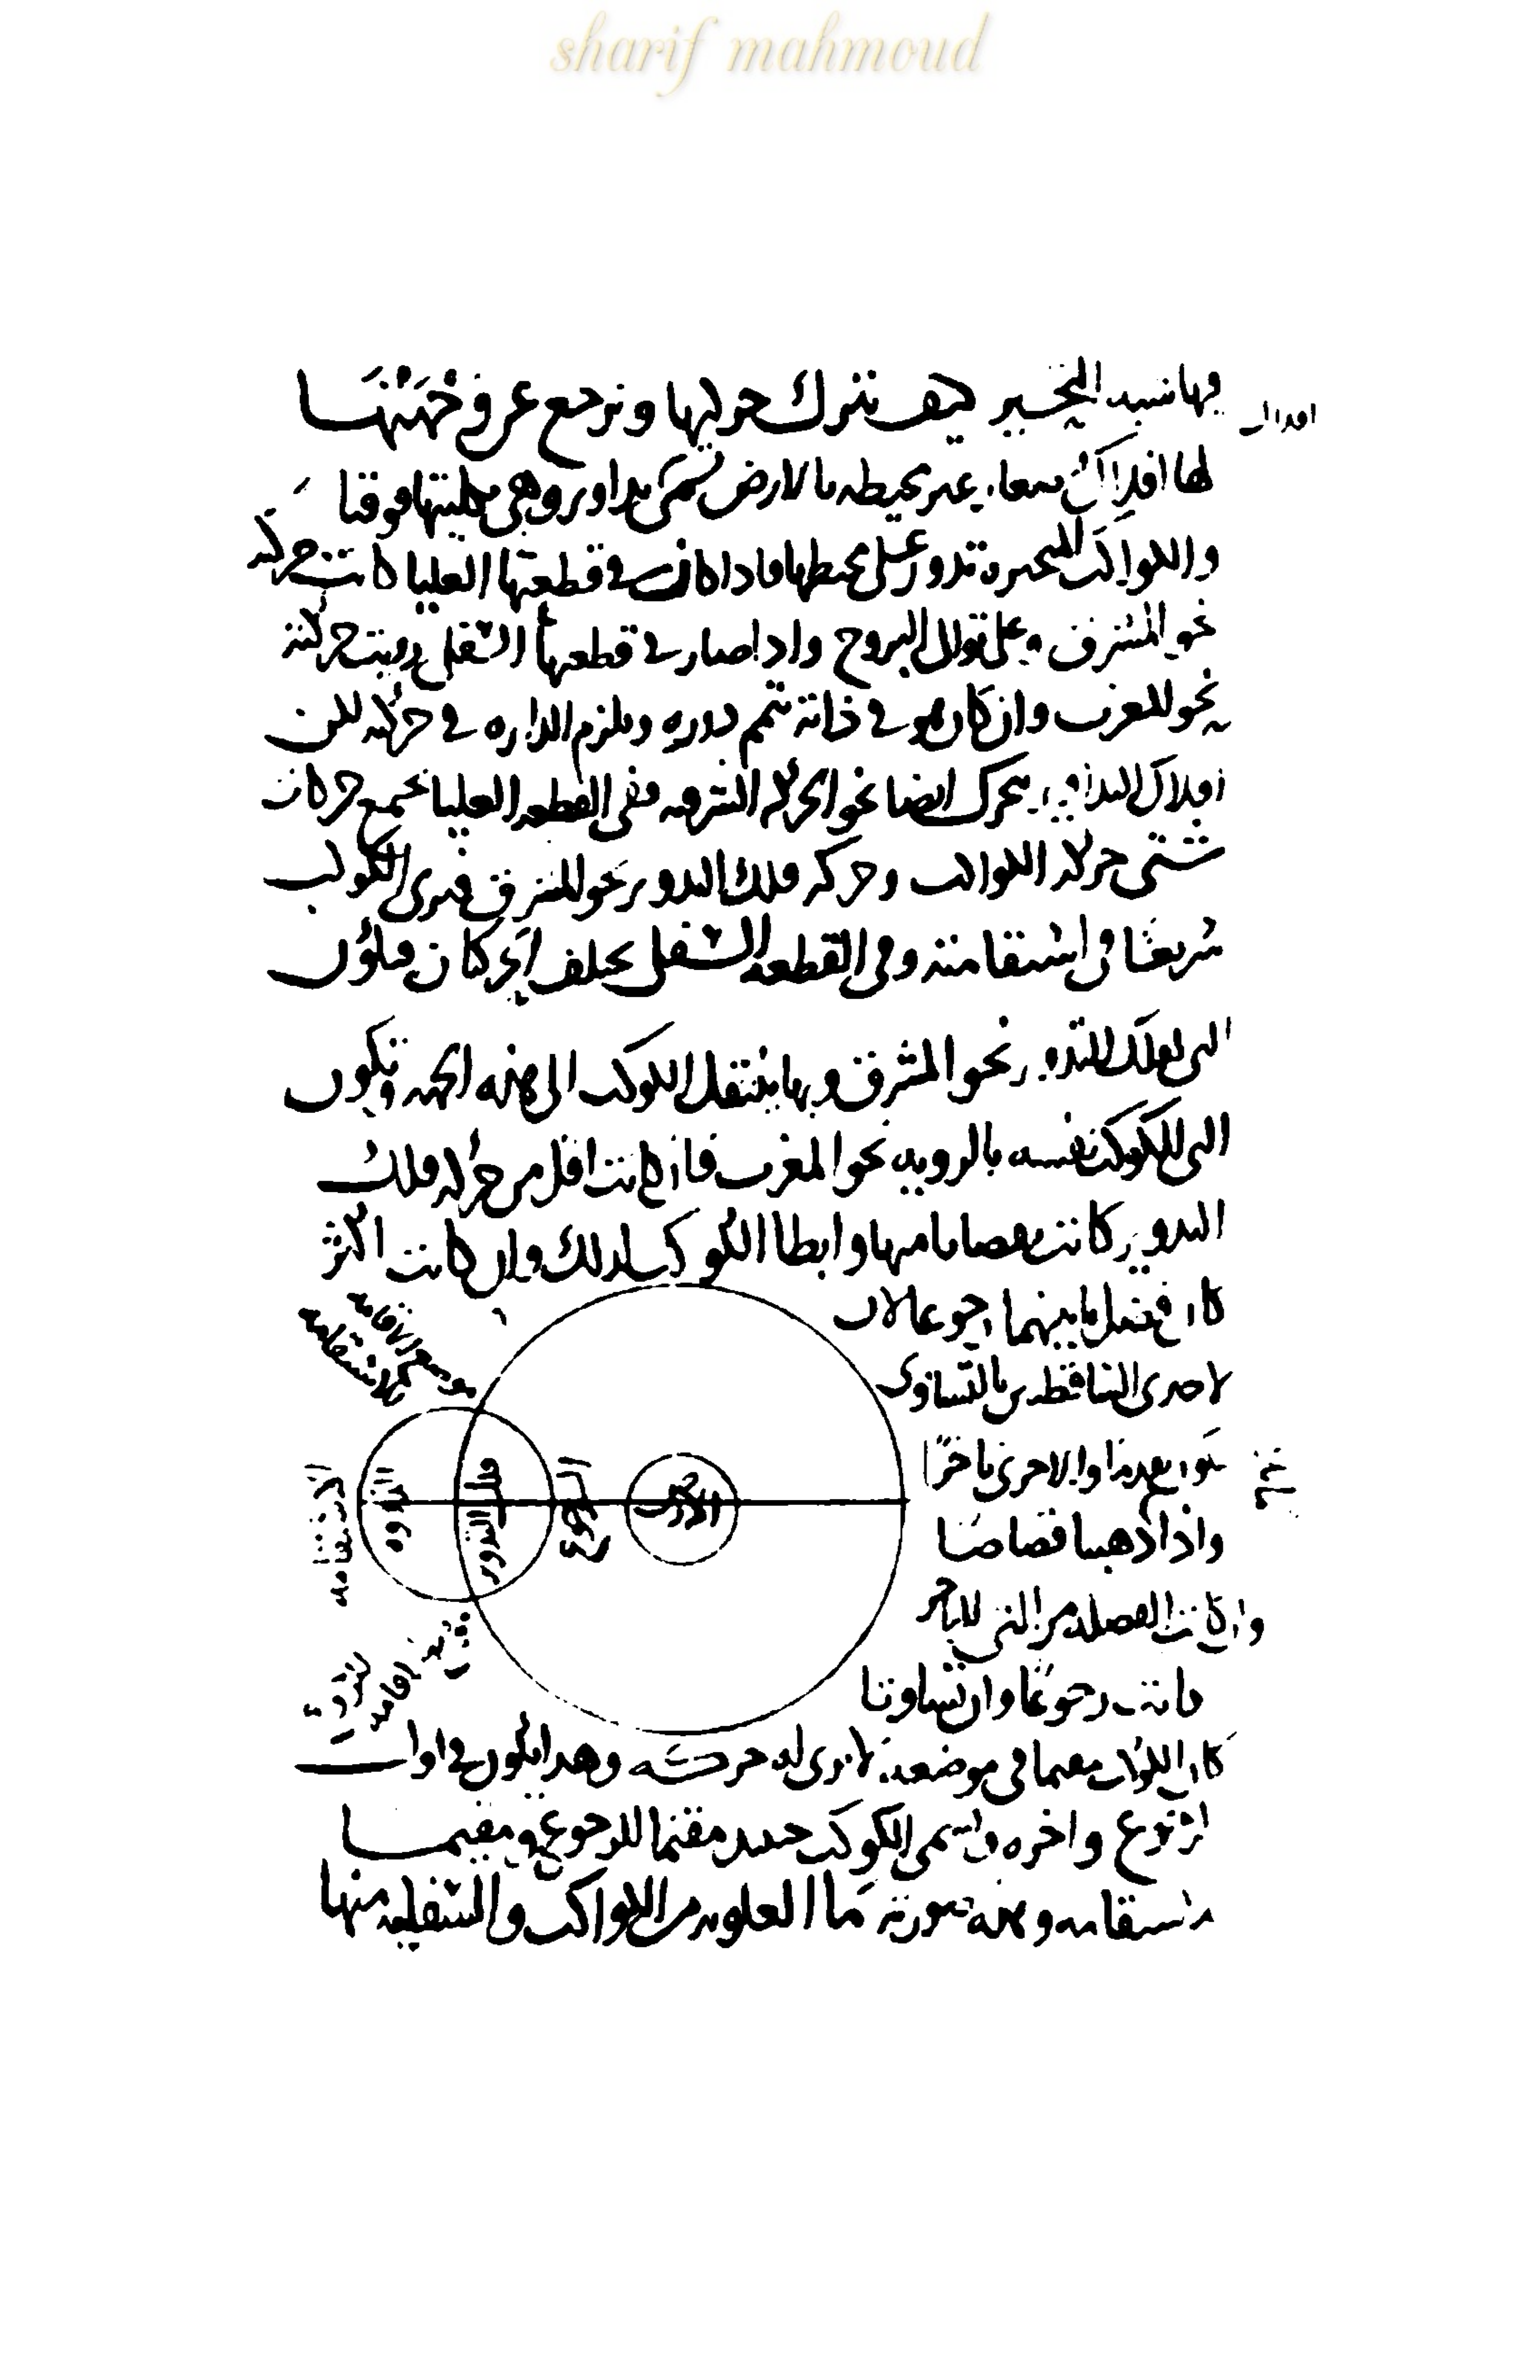 sharif mahmoud
كيف تترك حركتها وترجع عن وجهتها
لها افلاك صغار غير محيطه بالارض تسمى تداوير وهى بكليتها فوقنا
والكواكب المتحيره تدور على محيطها فاذا كانت فى قطعتها العليا كانت حركته
نحو المشرق وعلى توالى البروج واذا صار فى قطعتها السفلى رويت حركته
نحو المغرب وان كان هو فى ذاته يتمم دوره ويلزم اداره فى حركته لكن
افلاك التداوير تتحرك ايضا نحو الحركه الشرقيه ففى القطعه العليا تجتمع حركات
شتى حركه الكواكب وحركه فلك التدوير نحو المشرق فيرى الكوكب
سريعا فى استقامته وفى القطعه السفلى يختلف الحركات فتكون
التى لفلك التدوير نحو المشرق وبها ينتقل الكوكب الى هذه الجهه وتكون
التى للكوكب نفسه بالرويه نحو المغرب فان كانت اقل من حركه فلك
التدوير كانت نقصانا منها وابطا الكوكب لذلك وان كانت اكثر
كان فضل ما بينهما رجوعا لان
احدى الناقضتين بالتساوى
تكون تقدما والاخرى تاخرا
واذا ذهبتا قصاصا
وان كانت الفضله من التى للتاخر
كانت رجوعا وان تساوتا
كان الكوكب مقيما فى موضعه لا يرى له حركه وهذا يكون فى اول
الرجوع واخره ويسمى الكوكب مقيما للرجوع ومقيما
للاستقامه وهذه صورته فاما العلويه من الكواكب والسفليه منها
الاستقامه
الذروه
فلك التدوير
الارض